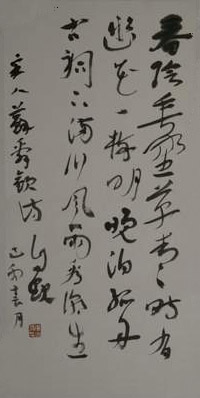 春陰垂野草青々時有
幽花一樹明晚泊孤舟
古祠下滿川風雨看潮生
宋人蘇舜欽詩